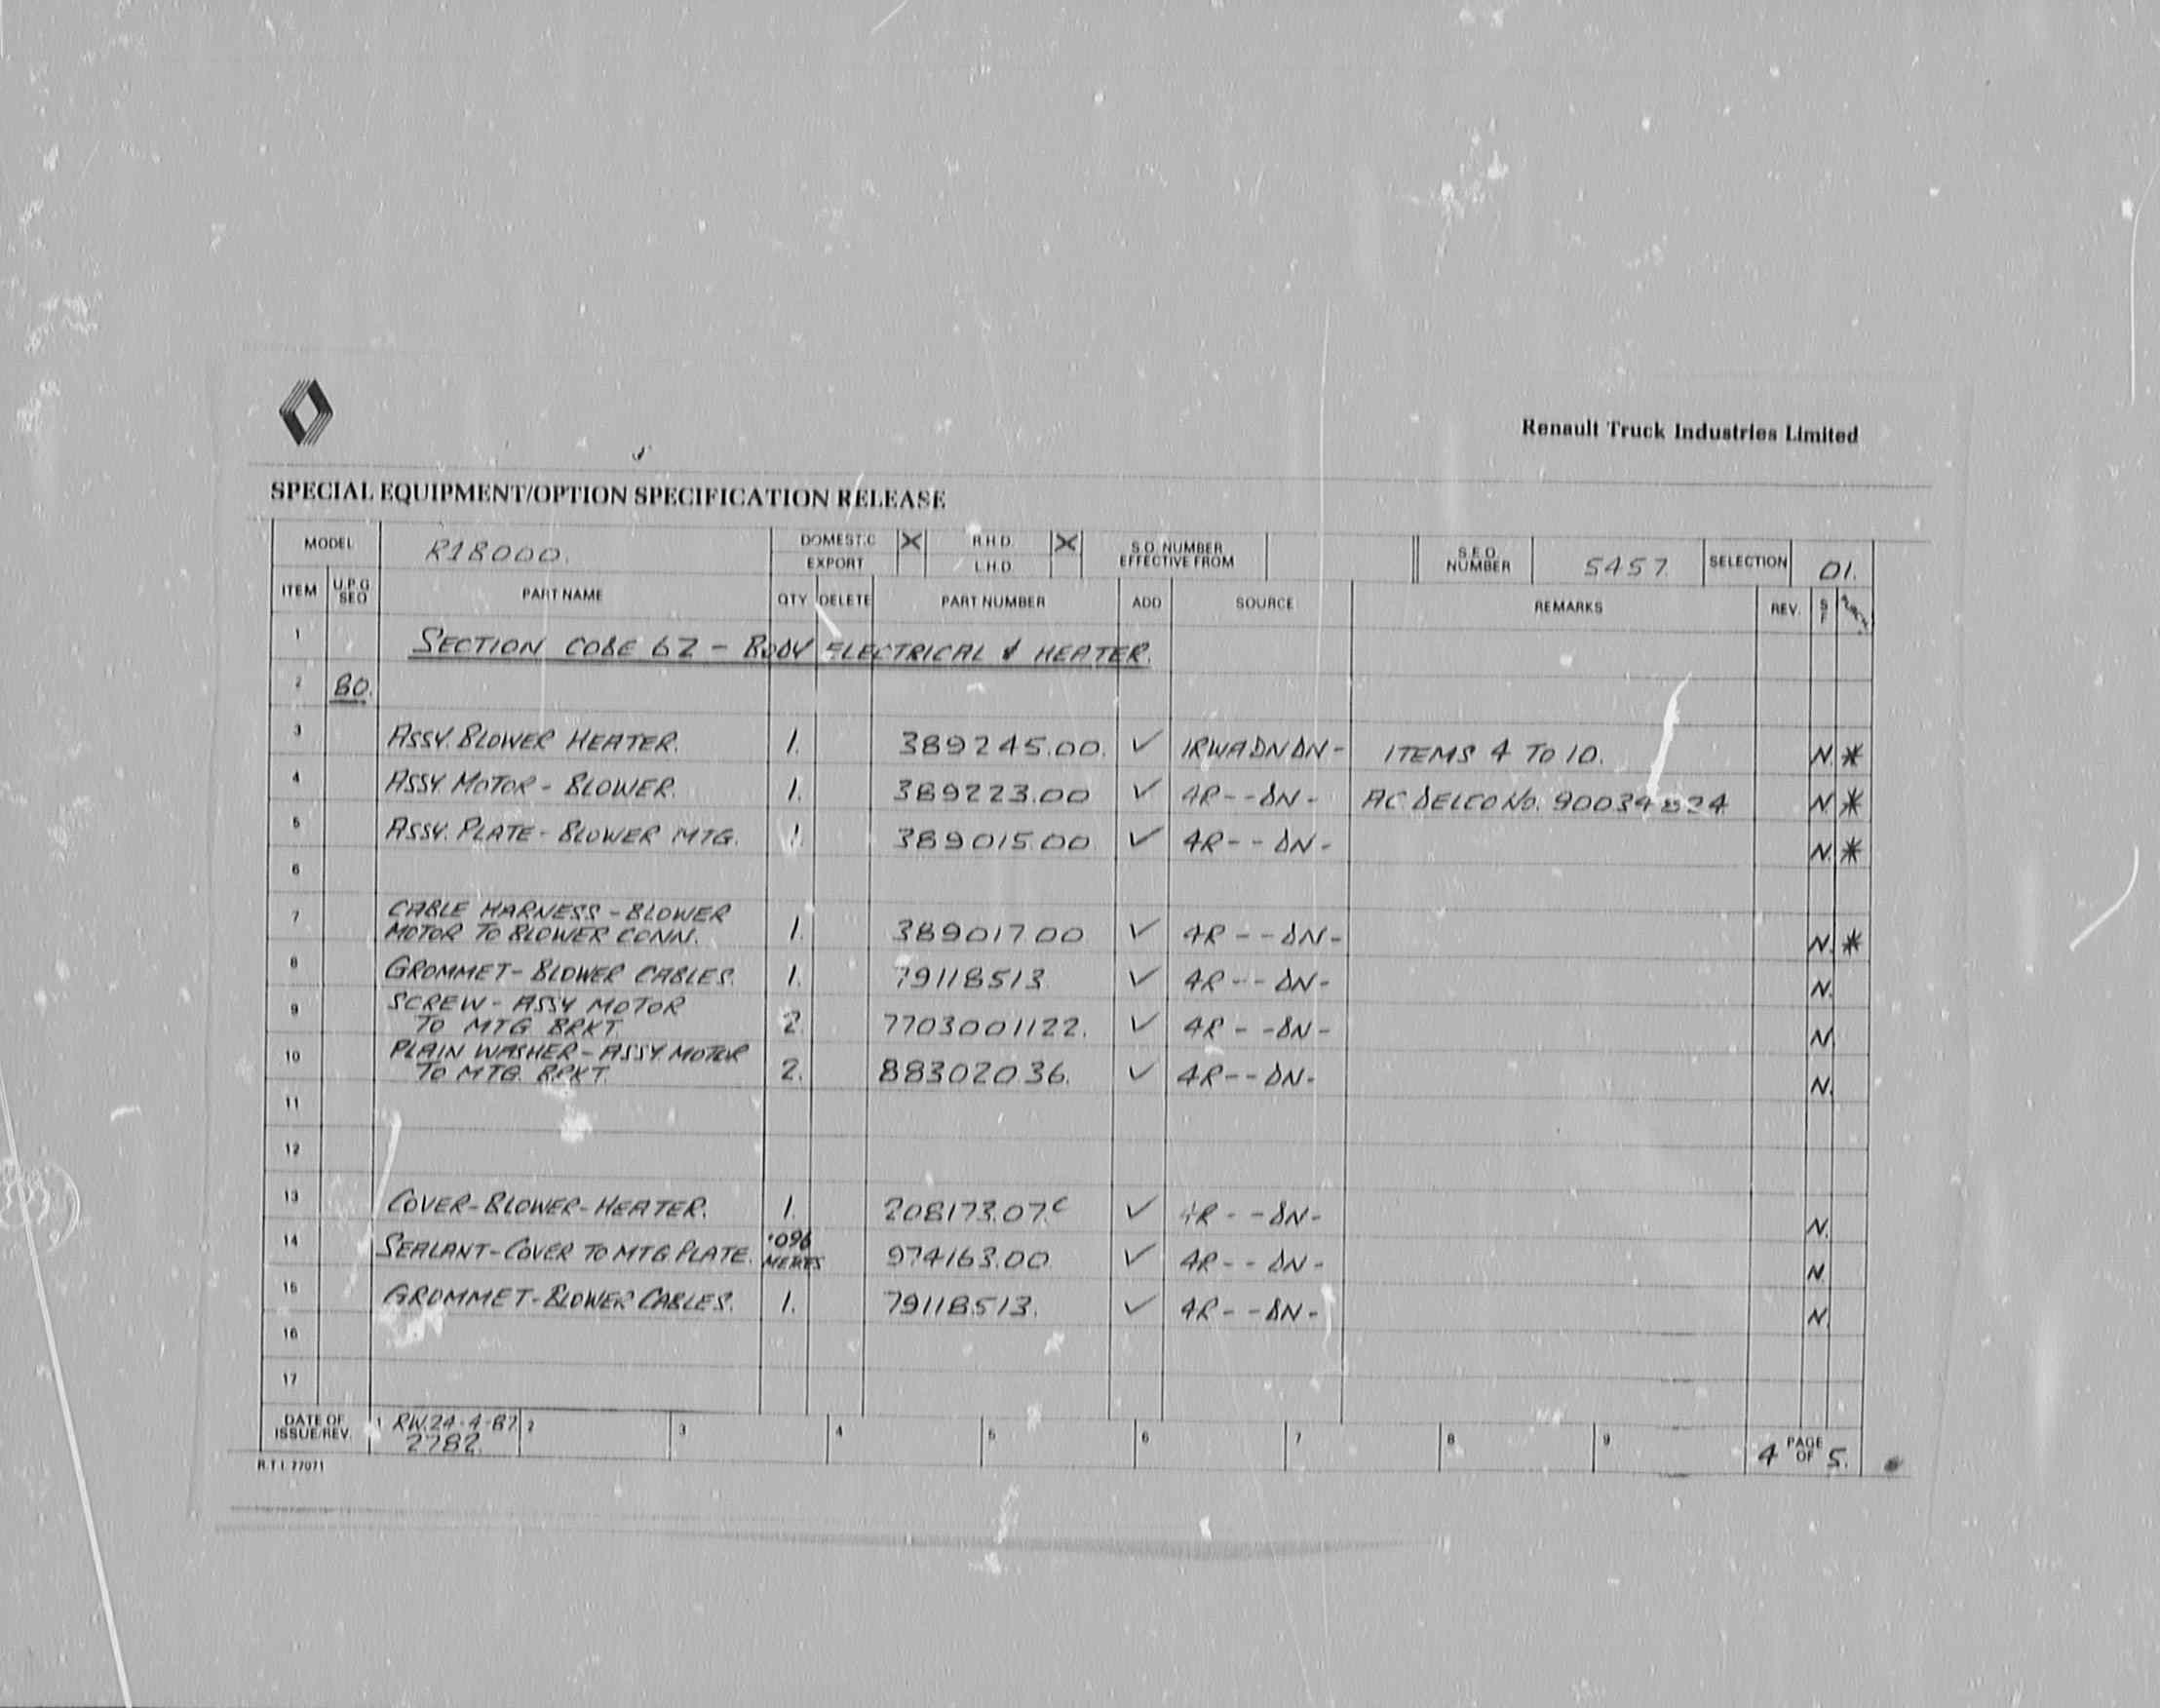 Renault Truck Industries Limited
SPECIAL EQUIPMENT/OPTION SPECIFICATION RELEASE
MODEL R18000. DOMESTIC X R.H.D. X S.O. NUMBER EFFECTIVE FROM S.E.O. NUMBER 5457. SELECTION 01.
EXPORT L.H.D.
ITEM U.P.G SEQ PART NAME QTY DELETE PART NUMBER ADD SOURCE REMARKS REV. S F
1 SECTION CODE 62 - BODY ELECTRICAL & HEATER.
2 80.
3 ASSY. BLOWER HEATER. 1. 389245.00. ✓ IRWADNDN- ITEMS 4 TO 10. N. *
4 ASSY MOTOR - BLOWER. 1. 389223.00 ✓ 4R--DN- AC DELCO NO. N. *
5 ASSY. PLATE - BLOWER MTG. 1. 389015.00 ✓ 4R--DN- N. *
6
7 CABLE HARNESS - BLOWER
MOTOR TO BLOWER CONN. 1. 38901700 ✓ 4R--DN- N. *
8 GROMMET - BLOWER CABLES. 1. 79118513 ✓ 4R--DN- N.
9 SCREW - ASSY MOTOR
TO MTG BRKT. 2. 7703001122. ✓ 4R--DN- N.
10 PLAIN WASHER - ASSY. MOTOR
TO MTG. BRKT. 2. 88302036. ✓ 4R--DN- N.
11
12
13 COVER-BLOWER-HEATER. 1. 208173.07.C ✓ 4R--DN- N.
14 SEALANT-COVER TO MTG PLATE. ·096 METRES 974163.00 ✓ 4R--DN- N
15 GROMMET-BLOWER CABLES. 1. 79118513. ✓ 4R--DN- N.
16
17
DATE OF ISSUE/REV. 1 RW.24-4-87 2 3 4 5 6 7 8 9 4 PAGE OF 5.
2782.
R.T.I. 77071